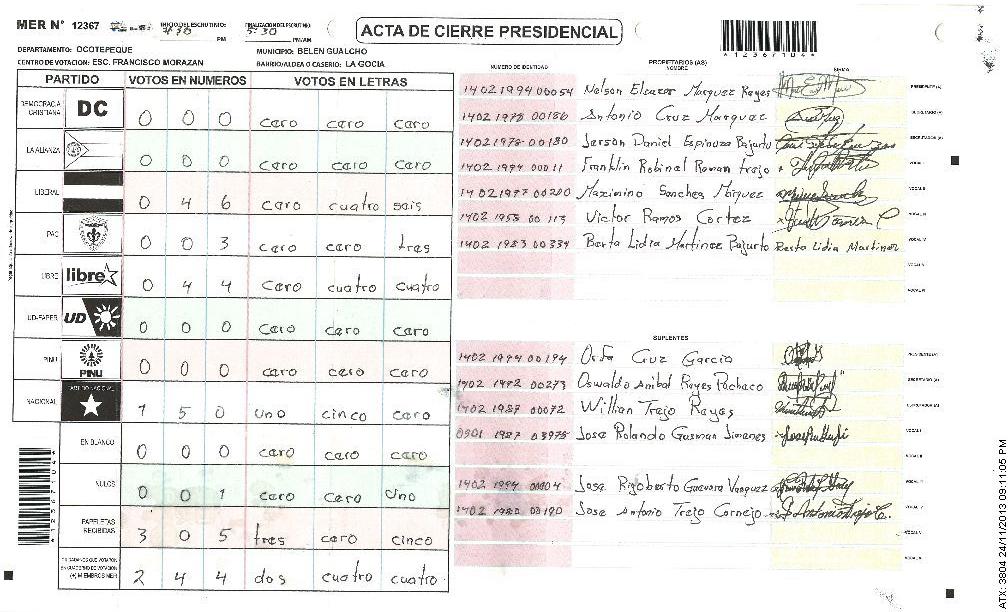 MER N° 12367
INICIO DEL ESCRUTINIO:
PM
FINALIZACION DEL ESCRUTINIO:
5:30
PM/AM
ACTA DE CIERRE PRESIDENCIAL
A12367104
DEPARTAMENTO: OCOTEPEQUE
MUNICIPIO: BELEN GUALCHO
CENTRO DE VOTACION: ESC. FRANCISCO MORAZAN
BARRIO/ALDEA O CASERIO: LA GOCIA
PARTIDO VOTOS EN NUMEROS VOTOS EN LETRAS
DEMOCRACIA CRISTIANA DC 0 0 0 caro caro caro
LA ALIANZA 0 0 0 caro caro caro
LIBERAL 0 4 6 caro cuatro sais
PAC 0 0 3 caro caro tres
LIBRE libre 0 4 4 caro cuatro cuatro
UD-FAPER UD 0 0 0 caro caro caro
PINU PINU 0 0 0 caro caro caro
NACIONAL PARTIDO NACIONAL 1 5 0 uno cinco caro
EN BLANCO 0 0 0 caro caro caro
NULOS 0 0 1 caro caro uno
PAPELETAS RECIBIDAS 3 0 5 tres caro cinco
CIUDADANOS QUE VOTARON EN CUADERNO DE VOTACION (+) MIEMBROS MER 2 4 4 dos cuatro cuatro
NUMERO DE IDENTIDAD
PROPIETARIOS (AS)
NOMBRE
FIRMA
1402 1994 00054 Nelson Eleazar Marquez Reyes PRESIDENTE (A)
1402 1978 00186 Antonio Cruz Marquez SECRETARIO (A)
1402 1978 00180 Jerson Daniel Espinoza Pajurto
1402 1994 00011 Franklin Robinal Roman trejo
1402 1977 00200 Maximino Sanchez Marquez
1402 1958 00 113 Victor Ramos Cortez
1402 1983 00334 Berta Lidia Martinez Pajurto Berta Lidia Martinez
SUPLENTES
1402 1994 00194 Orfa Cruz Garcia
1402 1972 00273 Oswaldo Anibal Reyes Pacheco
1402 1987 00072 Willian Trejo Reyes
0901 1987 03975 Jose Rolando Gusman Jimenes
1402 1994 00004 Jose Rigoberto Guevara Vasquez
1402 1980 00190 Jose Antonio Trejo Cornejo
ATX: 3804 24/11/2013 09:11:05 PM